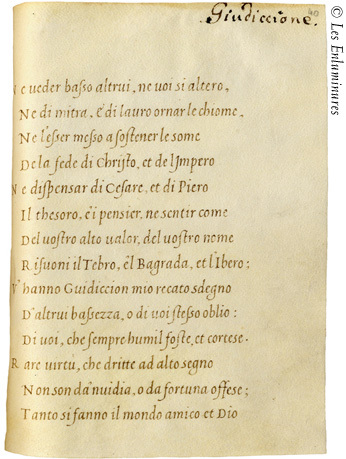 Giudiccione.
40
Ne ueder basso altrui, ne uoi si altero,
Ne di mitra, è di lauro ornar le chiome,
Ne l'esser messo a sostener le some
De la fede di Christo, et de l'Impero
Ne dispensar di Cesare, et di Piero
Il thesoro, è i pensier, ne sentir come
Del uostro alto ualor, del uostro nome
Risuoni il Tebro, èl Bagrada, et l'Ibero;
V'hanno Guidiccion mio recato sdegno
D'altrui bassezza, o di uoi stesso oblio:
Di uoi, che sempre humil foste, et cortese.
Rare uirtù, che dritte ad alto segno
Non son da inuidia, o da fortuna offese;
Tanto si fanno il mondo amico et Dio
© Les Enluminures